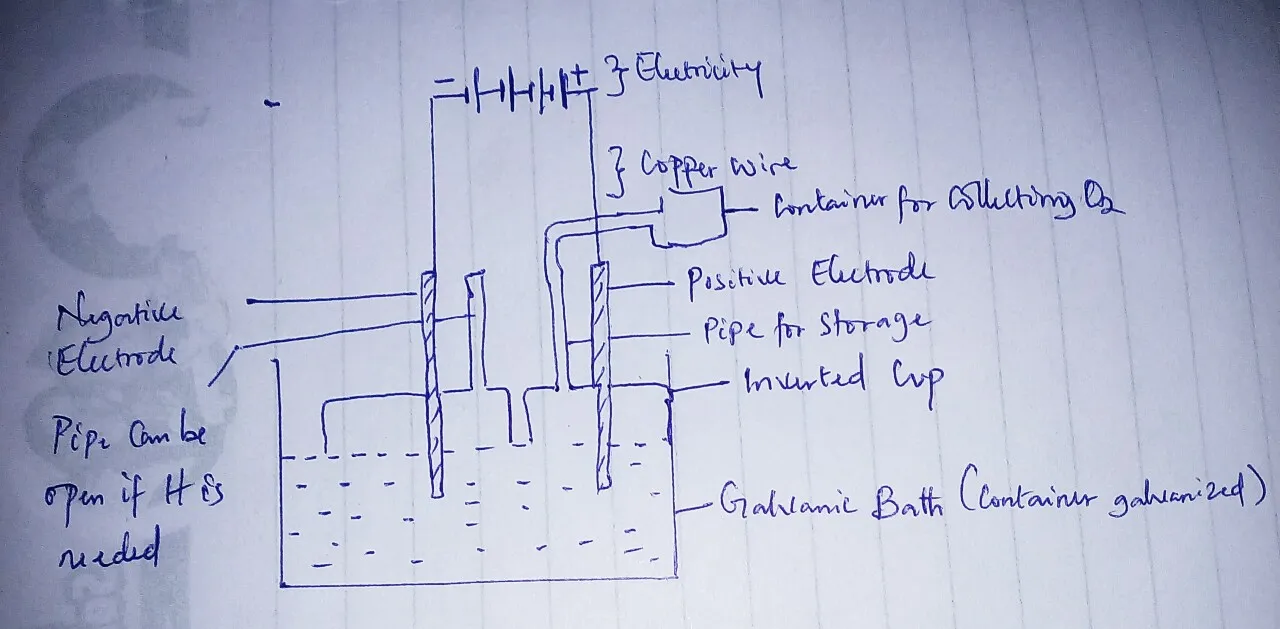 - +
} Electricity
} Copper wire
Container for Collecting O2
Positive Electrode
Pipe for Storage
Inverted Cup
Galvanic Bath (Container galvanized)
Negative
Electrode
Pipe Can be
open if H is
needed